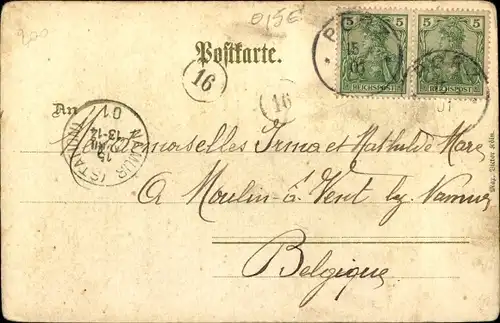 200
0,15€
5 5
5 5
REICHSPOST REICHSPOST
15
01
01
Postkarte.
16
16
An
NAMUR (STATION)
15
13-14
01
Mesdemoiselles Irma et Mathilde Mare
A Moulin-à-Vent by Namur
Belgique